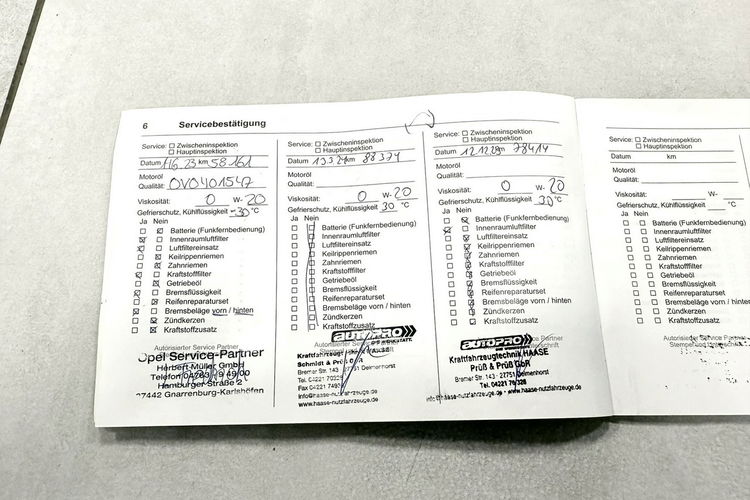 6 Servicebestätigung
Service: Zwischeninspektion
Hauptinspektion
Datum 116 23 km 58161
Motoröl
Qualität: OVO401547
Viskosität: 0 W- 20
Gefrierschutz, Kühlflüssigkeit -30 °C
Ja Nein
Batterie (Funkfernbedienung)
Innenraumluftfilter
Luftfiltereinsatz
Keilrippenriemen
Zahnriemen
Kraftstofffilter
Getriebeöl
Bremsflüssigkeit
Reifenreparaturset
Bremsbeläge vorn / hinten
Zündkerzen
Kraftstoffzusatz
Autorisierter Service Partner
Opel Service-Partner
Herbert Müller GmbH
Telefon 04763
Hamburger Straße 2
27442 Gnarrenburg-Karlshöfen
Service: Zwischeninspektion
Hauptinspektion
Datum 13.3.24 km 88374
Motoröl
Qualität:
Viskosität: 0 W- 20
Gefrierschutz, Kühlflüssigkeit 30 °C
Ja Nein
Batterie (Funkfernbedienung)
Innenraumluftfilter
Luftfiltereinsatz
Keilrippenriemen
Zahnriemen
Kraftstofffilter
Getriebeöl
Bremsflüssigkeit
Reifenreparaturset
Bremsbeläge vorn / hinten
Zündkerzen
Kraftstoffzusatz
AUTOPRO
Kraftfahrzeug
Schmidt & Prüß GbR
Bremer Str. 143 27751 Delmenhorst
Tel. 04221 70326
Fax 04221
info@haase-nutzfahrzeuge.de
www.haase-nutzfahrzeuge.de
Service: Zwischeninspektion
Hauptinspektion
Datum 12.12.23 km 78414
Motoröl
Qualität:
Viskosität: 0 W- 20
Gefrierschutz, Kühlflüssigkeit 30 °C
Ja Nein
Batterie (Funkfernbedienung)
Innenraumluftfilter
Luftfiltereinsatz
Keilrippenriemen
Zahnriemen
Kraftstofffilter
Getriebeöl
Bremsflüssigkeit
Reifenreparaturset
Bremsbeläge vorn / hinten
Zündkerzen
Kraftstoffzusatz
AUTOPRO
Kraftfahrzeugtechnik HAASE
Prüß & Prüß GbR
Bremer Str. 143 - 27751 Delmenhorst
Tel. 04221 70326
info@haase-nutzfahrzeuge.de - www.haase-nutzfahrzeuge.de
Service: Zwischeninspektion
Hauptinspektion
Datum km
Motoröl
Qualität:
Viskosität: W-
Gefrierschutz, Kühlflüssigkeit °C
Ja Nein
Batterie (Funkfernbedienung)
Innenraumluftfilter
Luftfiltereinsatz
Keilrippenriemen
Zahnriemen
Kraftstofffilter
Getriebeöl
Bremsflüssigkeit
Reifenreparaturset
Bremsbeläge vorn / hinten
Zündkerzen
Kraftstoffzusatz
Autorisierter Service Partner